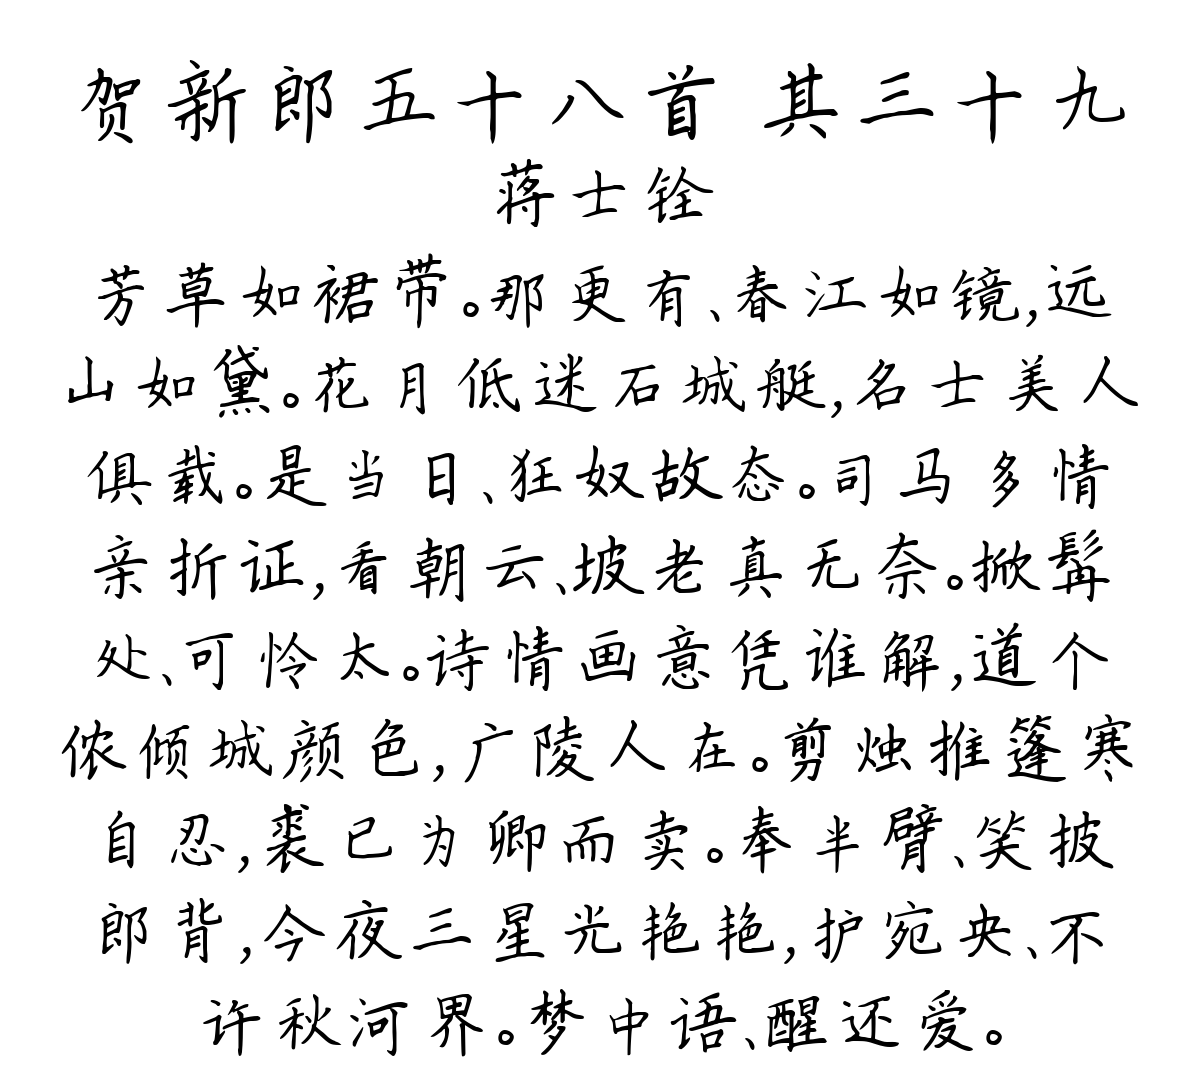 贺新郎五十八首 其三十九
蒋士铨
芳草如裙带。那更有、春江如镜,远
山如黛。花月低迷石城艇,名士美人
俱载。是当日、狂奴故态。司马多情
亲折证,看朝云、坡老真无奈。掀髯
处、可怜太。诗情画意凭谁解,道个
侬倾城颜色,广陵人在。剪烛推篷寒
自忍,裘已为卿而卖。奉半臂、笑披
郎背,今夜三星光艳艳,护宛央、不
许秋河界。梦中语、醒还爱。